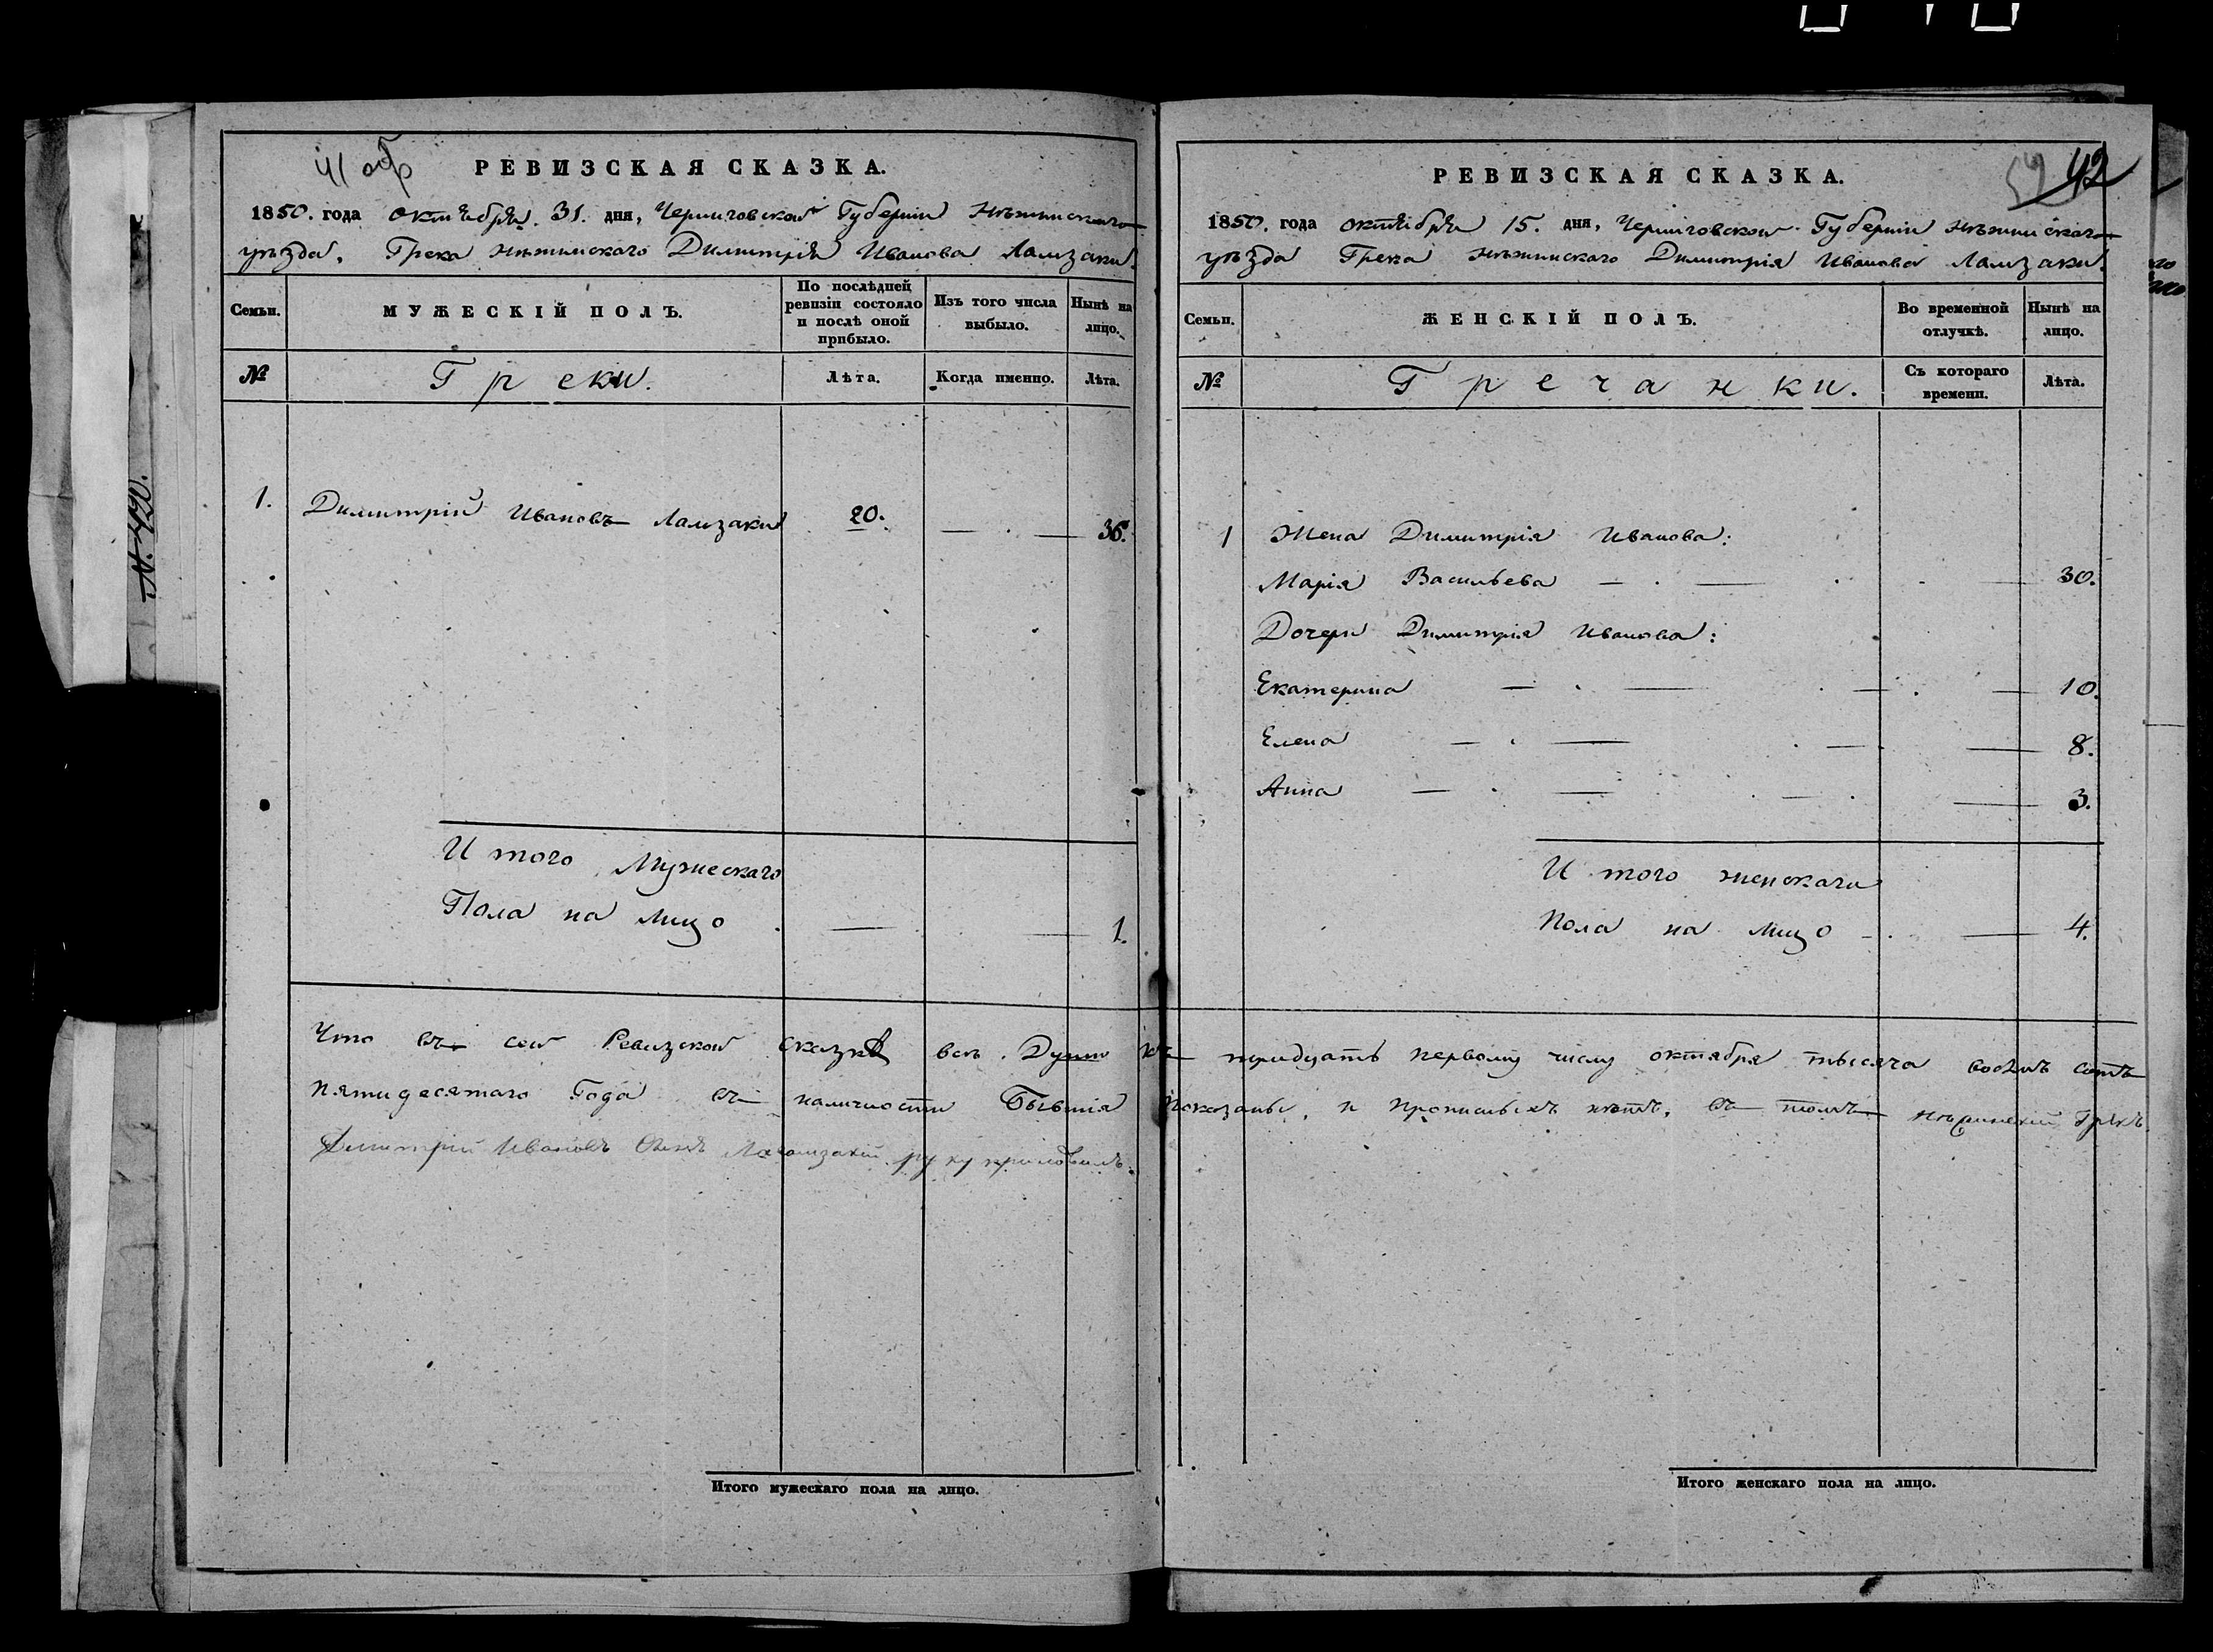 41 об
РЕВИЗСКАЯ СКАЗКА.
1850. года октября. 31. дня, Черниговской Губернии Нѣжинскаго
уѣзда, Грека нѣжинскаго Димитрія Иванова Ламзаки.
Семьи.
МУЖЕСКІЙ ПОЛЪ.
По послѣдней ревизіи состояло и послѣ оной прибыло.
Изъ того числа выбыло.
Нынѣ на лицо.
№
Греки.
Лѣта.
Когда именно.
Лѣта.
1. Димитрій Ивановъ Ламзаки 20. 36.
И того Мужескаго
Пола на лицо 1.
N. 420.
54 42
РЕВИЗСКАЯ СКАЗКА.
1850. года октября 15. дня, Черниговской Губернии Нѣжинскаго
уѣзда Грека Нѣжинскаго Димитрія Иванова Ламзаки.
Семьи.
ЖЕНСКІЙ ПОЛЪ.
Во временной отлучкѣ.
Нынѣ на лицо.
№
Гречанки.
Съ котораго времени.
Лѣта.
1 Жена Димитрія Иванова:
Марія Васильева 30.
Дочери Димитрія Иванова:
Екатерина 10.
Елена 8.
Анна 3.
И того женскаго
Пола на лицо 4.
Что въ сей Ревизской сказкѣ всѣ Души къ тридцать первому числу октября тысяча восемъ сотъ
пятидесятаго Года въ наличности Бывшія показаны, и прописныхъ нѣтъ, въ томъ нѣжинскій Грекъ
Димитрій Ивановъ сынъ руку приложилъ.
Итого мужескаго пола на лицо.
Итого женскаго пола на лицо.